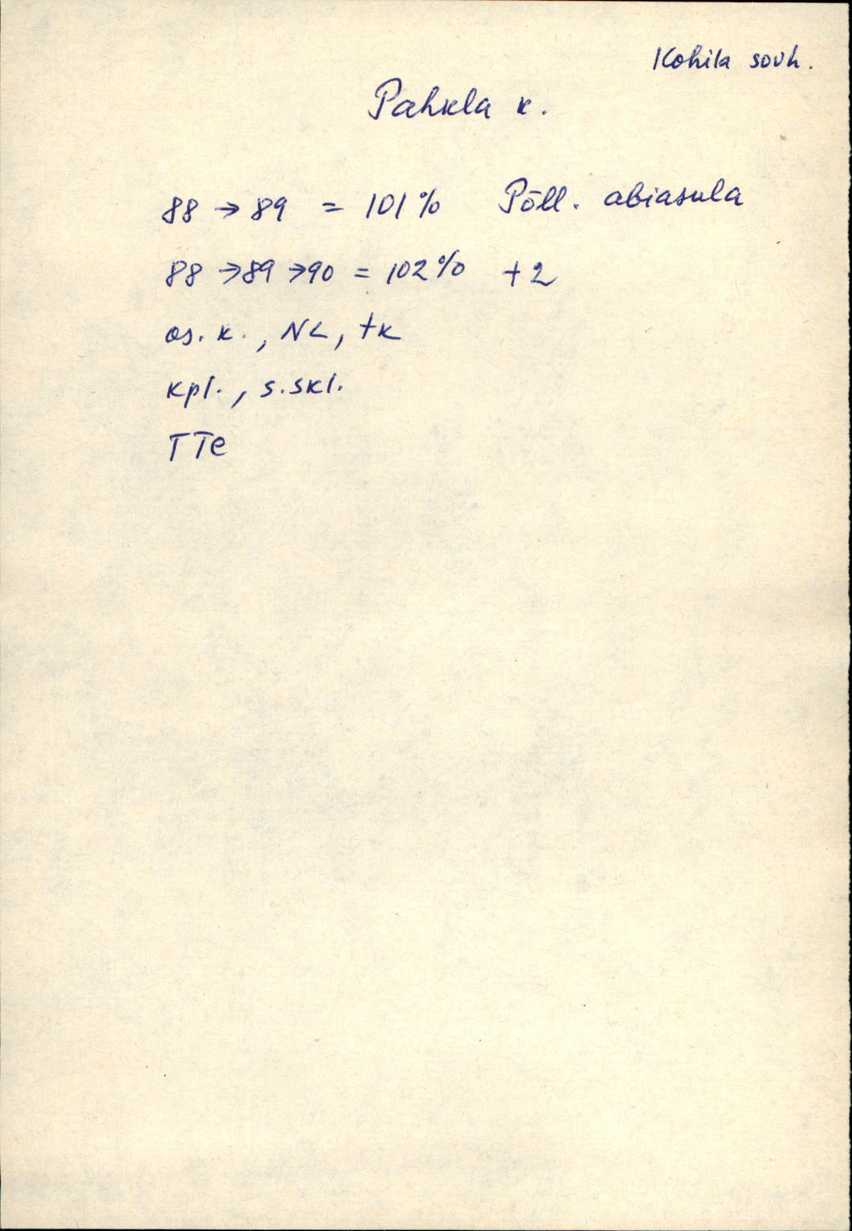 Kohila sovh.
Pahkla k.
88 → 89 = 101% Põll. abiasula
88 → 89 → 90 = 102% +2
os. k., NL, tk
kpl., s.skl.
TTe